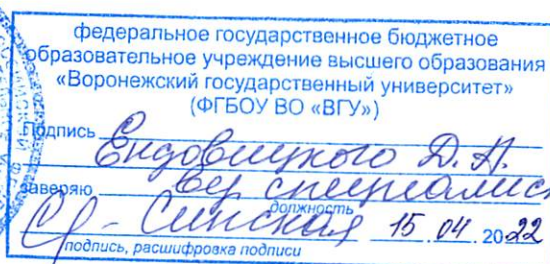 федеральное государственное бюджетное
образовательное учреждение высшего образования
«Воронежский государственный университет»
(ФГБОУ ВО «ВГУ»)
Подпись
Ендовицкого Д. А.
заверяю вед специалис
должность
Синская 15 .04 .2022
подпись, расшифровка подписи